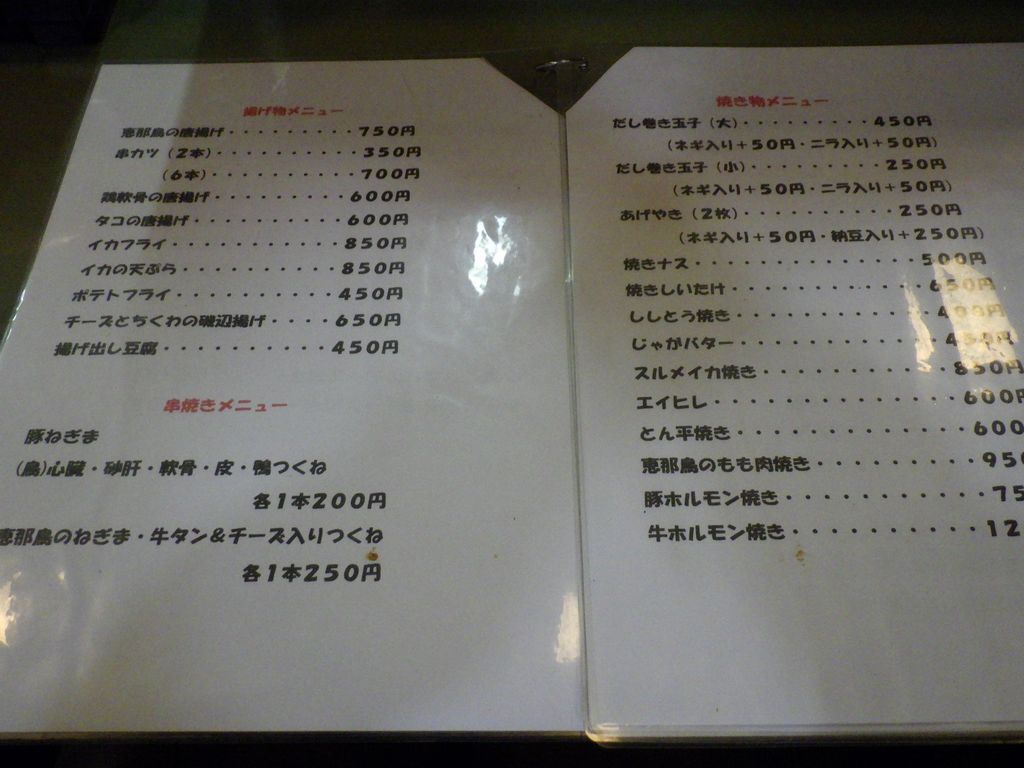 揚げ物メニュー
恵那鳥の唐揚げ・・・・・・・・・750円
串カツ（2本）・・・・・・・・・・350円
（6本）・・・・・・・・・・700円
鶏軟骨の唐揚げ・・・・・・・・・600円
タコの唐揚げ・・・・・・・・・・600円
イカフライ・・・・・・・・・・・850円
イカの天ぷら・・・・・・・・・・850円
ポテトフライ・・・・・・・・・・450円
チーズとちくわの磯辺揚げ・・・・650円
揚げ出し豆腐・・・・・・・・・・450円
串焼きメニュー
豚ねぎま
(鳥)心臓・砂肝・軟骨・皮・鴨つくね
各1本200円
恵那鳥のねぎま・牛タン＆チーズ入りつくね
各1本250円
焼き物メニュー
だし巻き玉子（大）・・・・・・・・・450円
（ネギ入り＋50円・ニラ入り＋50円）
だし巻き玉子（小）・・・・・・・・・250円
（ネギ入り＋50円・ニラ入り＋50円）
あげやき（2枚）・・・・・・・・・・250円
（ネギ入り＋50円・納豆入り＋250円）
焼きナス・・・・・・・・・・・・・・500円
焼きしいたけ・・・・・・・・・・・・650円
ししとう焼き・・・・・・・・・・・・400円
じゃがバター・・・・・・・・・・・・450円
スルメイカ焼き・・・・・・・・・・・850円
エイヒレ・・・・・・・・・・・・・・600円
とん平焼き・・・・・・・・・・・・・600
恵那鳥のもも肉焼き・・・・・・・・・950
豚ホルモン焼き・・・・・・・・・・・75
牛ホルモン焼き・・・・・・・・・・12